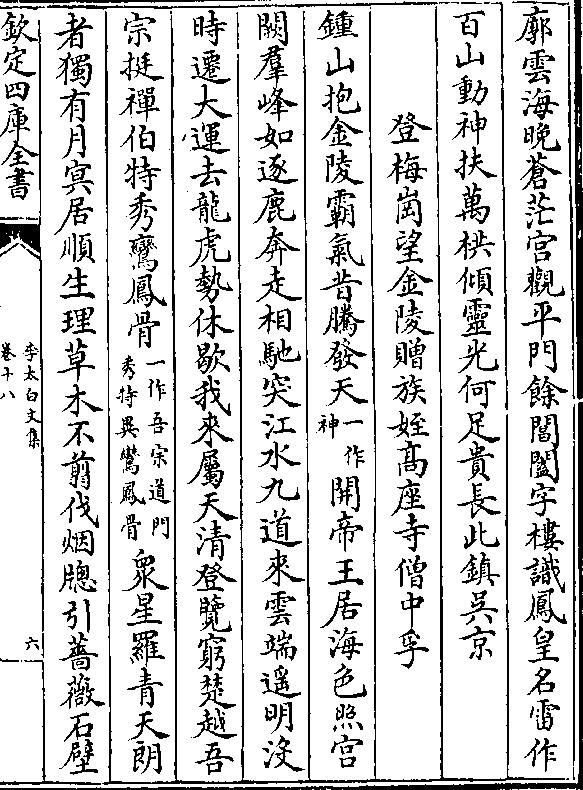 廓雲海晚蒼茫宫觀平門餘閶闔字樓識鳳皇名雷作
百山動神扶萬栱傾靈光何足貴長此鎮吳京
登梅崗望金陵贈族姪髙座寺僧中孚
鍾山抱金陵霸氣昔騰發天一作神開帝王居海色照宫
闕羣峰如逐鹿奔走相馳突江水九道來雲端遥明沒
時遷大運去龍虎勢休歇我來屬天清登覽窮楚越吾
宗挺禪伯特秀鸞鳳骨一作吾宗道門秀特異鸞鳳骨衆星羅青天朗
者獨有月冥居順生理草木不翦伐烟牕引薔薇石壁
欽定四庫全書
李太白文集
卷十八
六